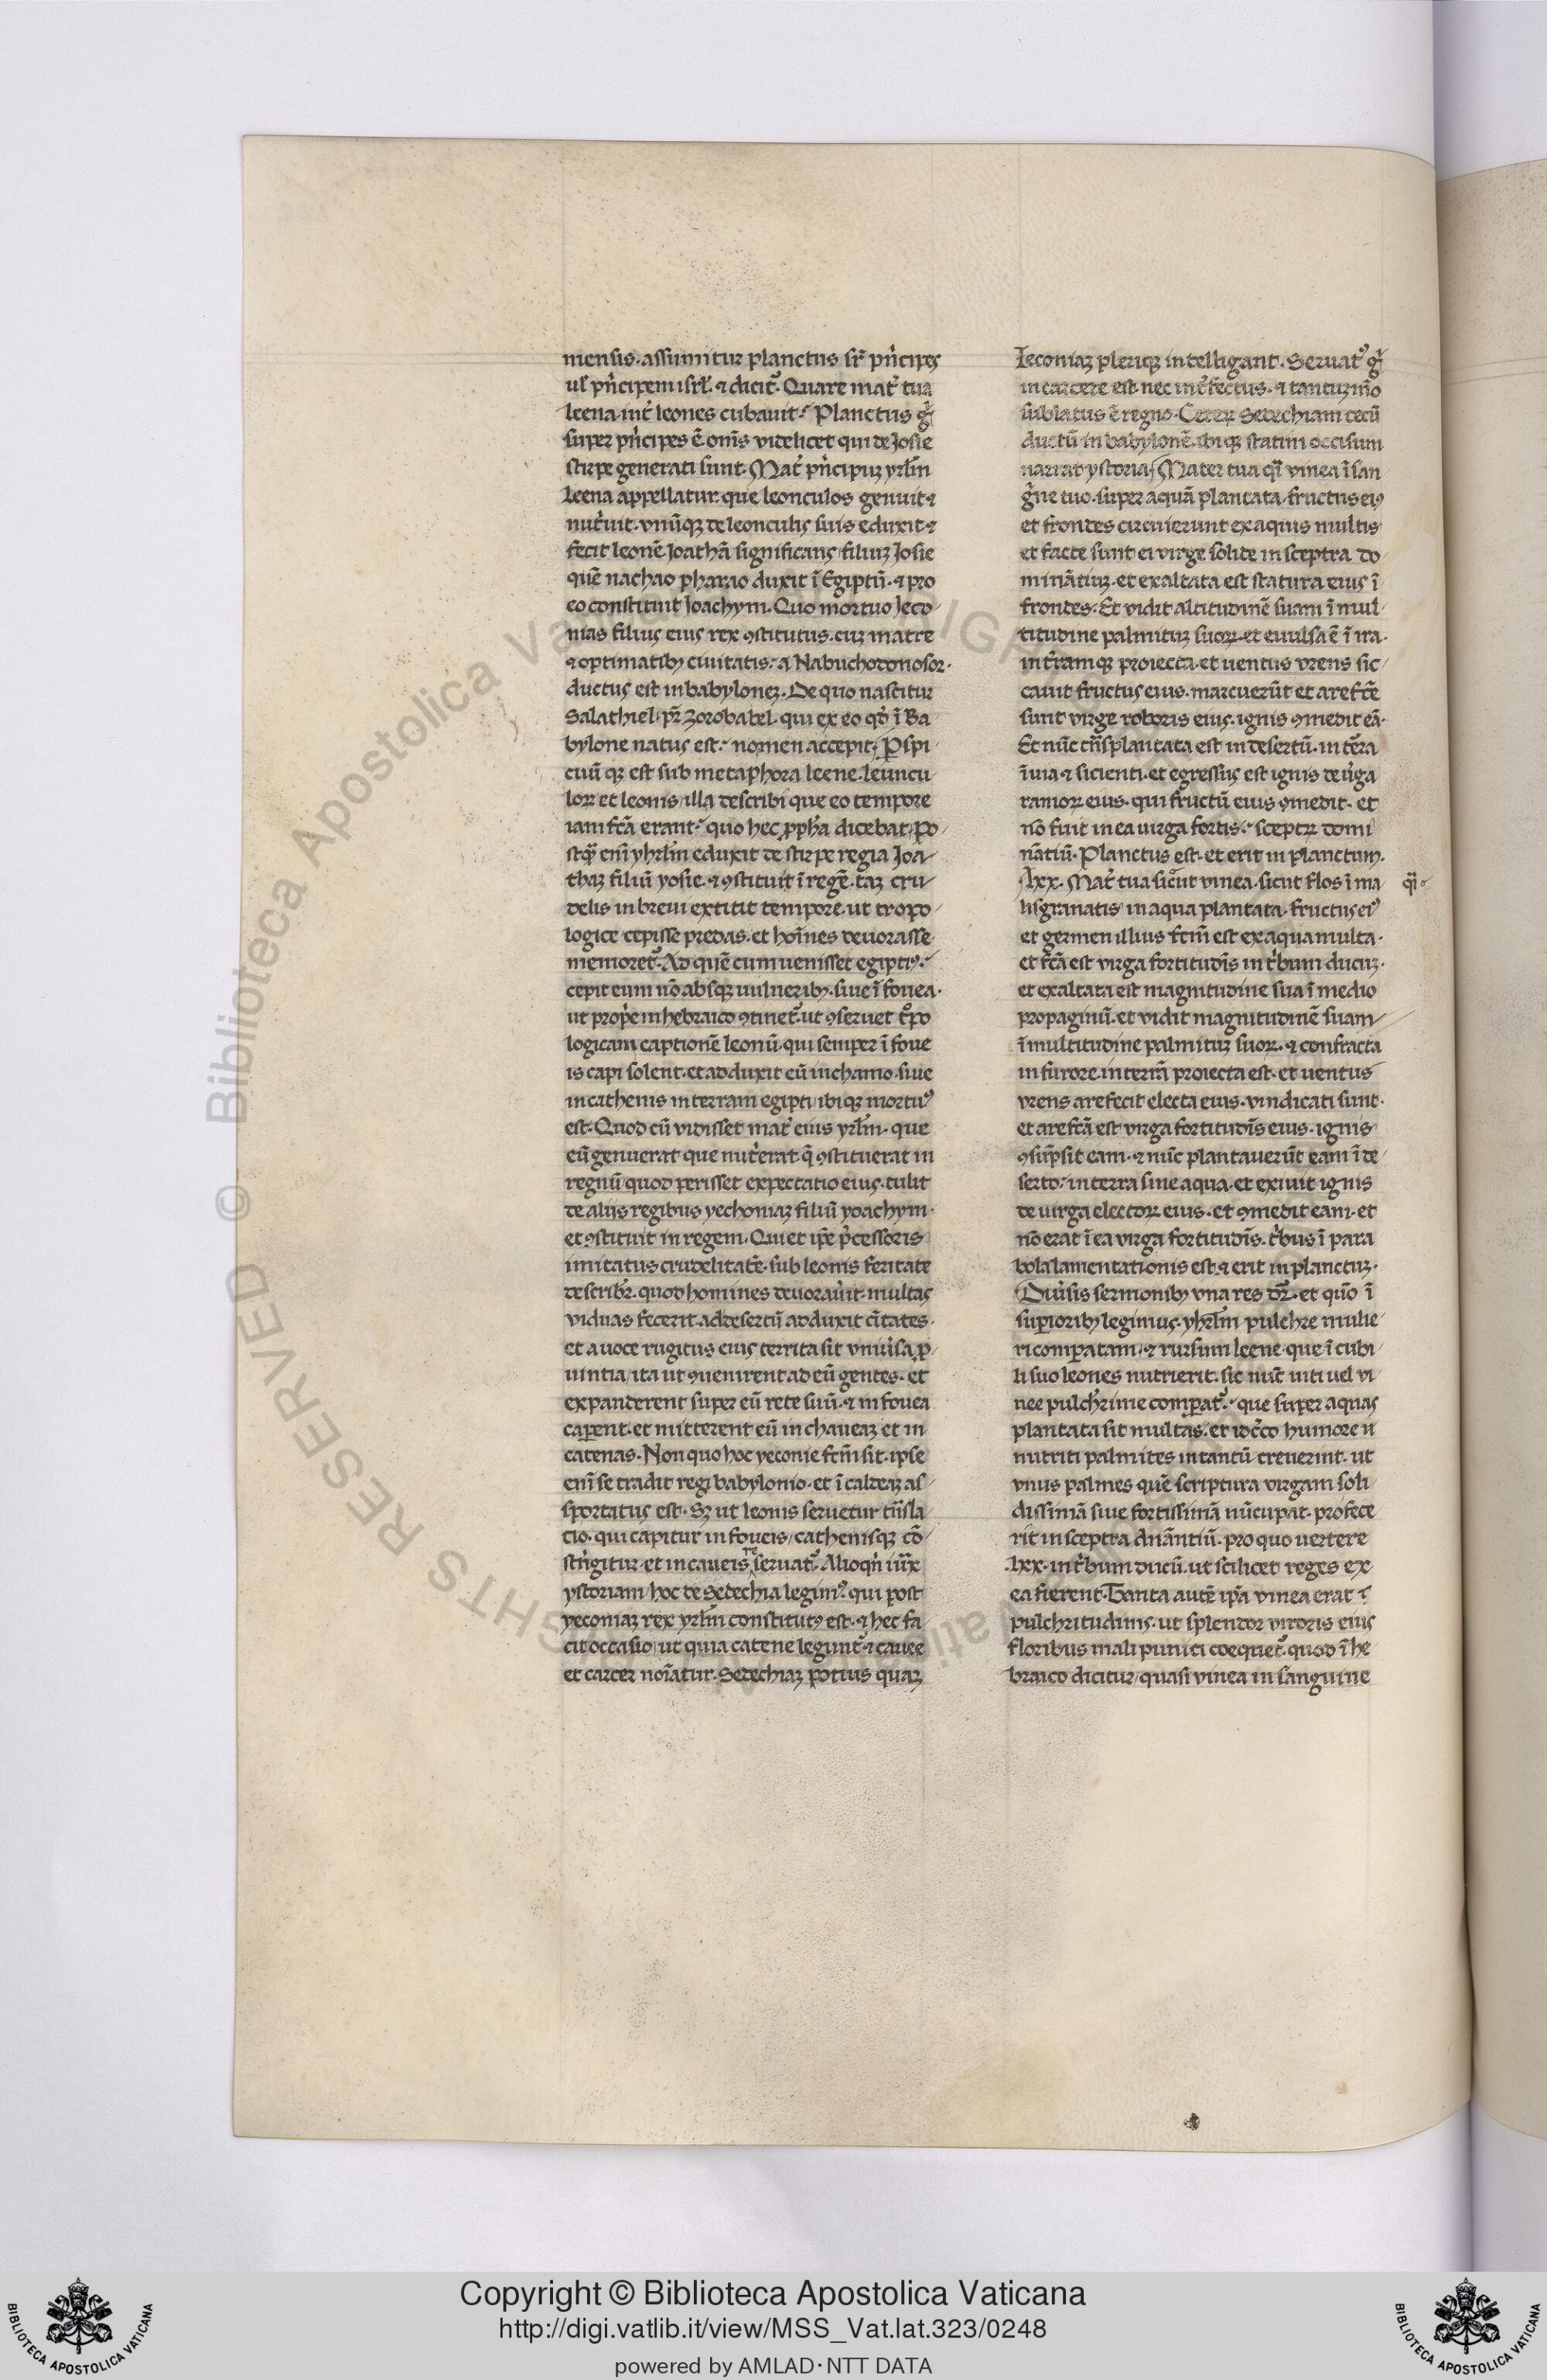 mensis. assumitur planctus sr̃ pͥncipes
ul̃ pͥncipem isrl̃. ⁊ dicit᷒. Quare mat̓ tua
leena int̓ leones cubauit. Planctus gͥ
super pͥncipes ē om̄s videlicet qui de Josie
stirpe generati sunt. Mat̓ pͥncipuꝫ yrl̃m
Leena appellatur. que leonculos genuit ⁊
nut̓uit. vnūqꝫ de leonculis suis eduxit ⁊
fecit leonē Joathā significans filiuꝫ Josie
quē nachao pharao duxit ī Egiptū. ⁊ pro
eo constituit Joachym. Quo mortuo Jeco
nias filius eius rex ꝯstitutus. cuꝫ matre
⁊ optimatibꝫ ciuitatis. a Nabuchodonosor.
ductus est in babyloneꝫ. De quo nascitur
Salathiel. pr̃ Zorobabel. qui ex eo qd̓ ī Ba
bylone natus est. nomen accepit. Pspi
cuū qꝫ est sub metaphora leene. leuncu
loꝝ et leonis illa describi que eo tempore
iam fc̄a erant. quo hec ꝓph̃a dicebat. Po
stqꝫ̄ enī yhrl̃m eduxit de stirpe regia Joa
thaꝫ filiū yosie. ⁊ ꝯstituit ī regē. taꝫ cru
delis in breui extitit tempore. ut tropo
logice cepisse predas. et hoīnes deuorasse
memoret᷒. Ad quē cum uenisset egipti᷒.
cepit eum nō absqꝫ uulneribꝫ. siue ī fouea.
ut propͥe in hebraico ꝯtinet᷒. ut ꝯseruet tͦpo
logicam captionē leonū. qui semper ī foue
is capi solent. et adduxit eū in chamo. siue
in cathenis in terram egipti ibiqꝫ mortu᷒
est. Quod cū vidisset mat̓ eius yrl̃m. que
eū genuerat que nut̓erat q̄ ꝯstituerat in
regnū quod perisset expectatio eius. tulit
de aliis regibus yechoniaꝫ filiū yoachym.
et ꝯstituit in regem. Qui et ip̄e p̄cessoris
imitatus crudelitatē. sub leonis feritate
describ̃r. quod homines deuorau̓it. multas
viduas fecerit. ad desertū adduxit cītates.
et a uoce rugitus eius territa sit vniu̓sa ꝓ
uintia. ita ut ꝯuenirent ad eū gentes. et
expanderent super eū rete suū. ⁊ in fouea
caperent. et mitterent eū in chaueaꝫ et in
catenas. Non quo hoc yeconie fc̄m sit. ipse
enī se tradit regi babylonio. et ī caldeaꝫ as
sportatus est. Sꝫ ut leonis seruetur tn̄sla
tio. qui capitur in foueis cathenisqꝫ cō
stͥngitur. et in caueis reseruat᷒. Alioqn̄ iux̄
ystoriam hoc de Sedechia legim᷒. qui post
yeconiaꝫ rex yrl̃m constitut᷒ est. ⁊ hec fa
cit occasio ut quia catene legunt᷒ ⁊ cauee
et carcer noīatur. Sedechiaꝫ potius quaꝫ
Ieconiaꝫ pleriqꝫ intelligant. Seruat᷒ gͥ
in carcere est. nec int̓fectus. ⁊ tantuꝫmō
sublatus ē regno. Ceteꝝ Sedechiam cecū
ductū in babylonē. ibiqꝫ statim occisum
narrat ystoria. Mater tua qͣi vinea ī san
gͥne tuo. super aquā plantata. fructus ei᷒
et frondes circuierunt ex aquis multis
et facte sunt ei virge solide in sceptra do
minātiuꝫ. et exaltata est statura eius ī
frondes. Et vidit altitudinē suam ī mul
titudine palmituꝫ suoꝝ. et euulsa ē ī ira.
in t̓ramqꝫ proiecta. et uentus vrens sic
cauit fructus eius. marcuerūt et arefc̄e
sunt virge roboris eius. ignis ꝯmedit eā.
Et nūc tn̄splantata est in desertū. in tēra
īuia ⁊ sicienti. et egressus est ignis de u̓ga
ramoꝝ eius. qui fructū eius ꝯmedit. et
nō fuit in ea uirga fortis. sceptꝝ domi
nātiū. Planctus est. et erit in planctum.
.lxx. Mat̓ tua sicut vinea. sicut flos ī ma qͣi
lisgranatis in aqua plantata. fructus ei᷒
et germen illius fc̄m est ex aqua multa.
et fc̄a est virga fortitudīs in tͥbum ducuꝫ.
et exaltata est magnitudine sua ī medio
propaginū. et vidit magnitudinē suam
ī multitudine palmituꝫ suoꝝ. ⁊ confracta
in furore in terrā proiecta est. et uentus
vrens arefecit electa eius. vindicati sunt.
et arefc̄a est virga fortitudīs eius. ignis
ꝯsūpsit eam. ⁊ nūc plantauerūt eam ī de
serto. in terra sine aqua. et exiuit ignis
de uirga electoꝝ eius. et ꝯmedit eam. et
nō erat ī ea virga fortitudīs. tͥbus ī para
bola lamentationis est. ⁊ erit in planctuꝫ.
Diu̓sis sermonibꝫ vna res dr̃. et quō ī
superioribꝫ legimus. yhrl̃m pulchre mulie
ri comparatam. ⁊ rursum leene que ī cubi
li suo leones nutrierit. sic nūc uiti uel vi
nee pulcherime comparat᷒. que super aquas
plantata sit multas. et idc̓co humore n̄
nutriti palmites in tantū creuerint. ut
vnus palmes quē scriptura virgam soli
dissimā siue fortissimā nūcupat. profece
rit in sceptra dn̄antiū. pro quo vertere
.lxx. in tͥbum ducū. ut scilicet reges ex
ea fierent. Tanta autē ip̄a vinea erat ī
pulchritudinis. ut splendor viroris eius
floribus mali punici coequet᷒. quod ī he
braico dicitur. quasi vinea in sanguine
Copyright © Biblioteca Apostolica Vaticana
http://digi.vatlib.it/view/MSS_Vat.lat.323/0248
powered by AMLAD·NTT DATA
BIBLIOTECA APOSTOLICA VATICANA
BIBLIOTECA APOSTOLICA VATICANA